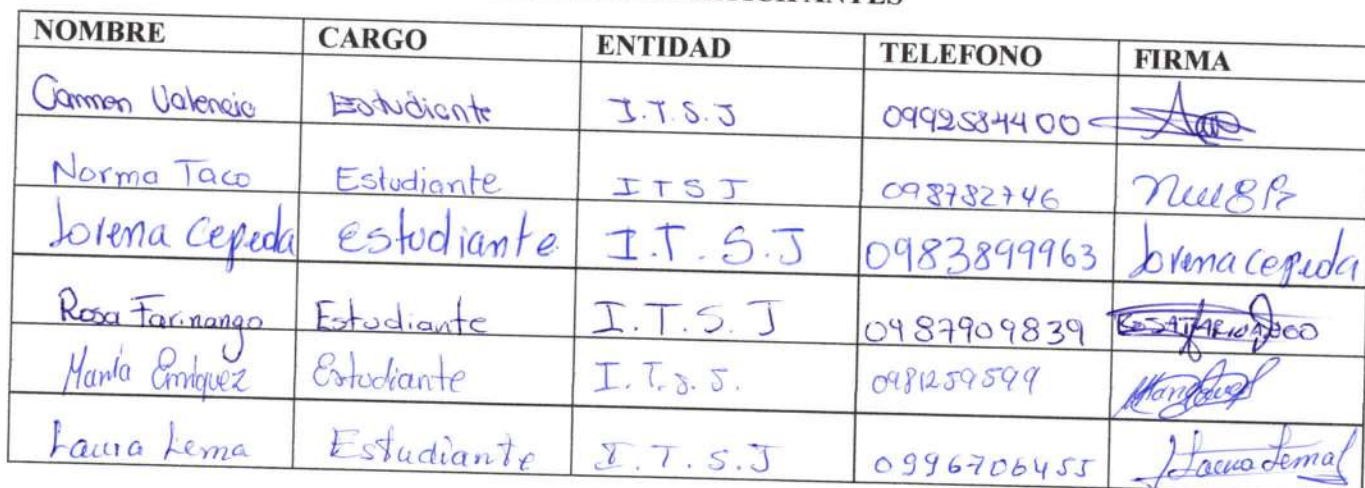 NOMBRE CARGO ENTIDAD TELEFONO FIRMA
Carmen Valencia Estudiante I.T.S.J 0992584400
Norma Taco Estudiante I T S J 098782746
Lorena Cepeda estudiante I.T.S.J 0983899963 Lorena cepeda
Rosa Farinango Estudiante I.T.S.J 0987909839 ROSA FARINANGO
María Enríquez Estudiante I.T.S.J. 0981259599
Laura Lema Estudiante I.T.S.J 0996706455 Laura Lema